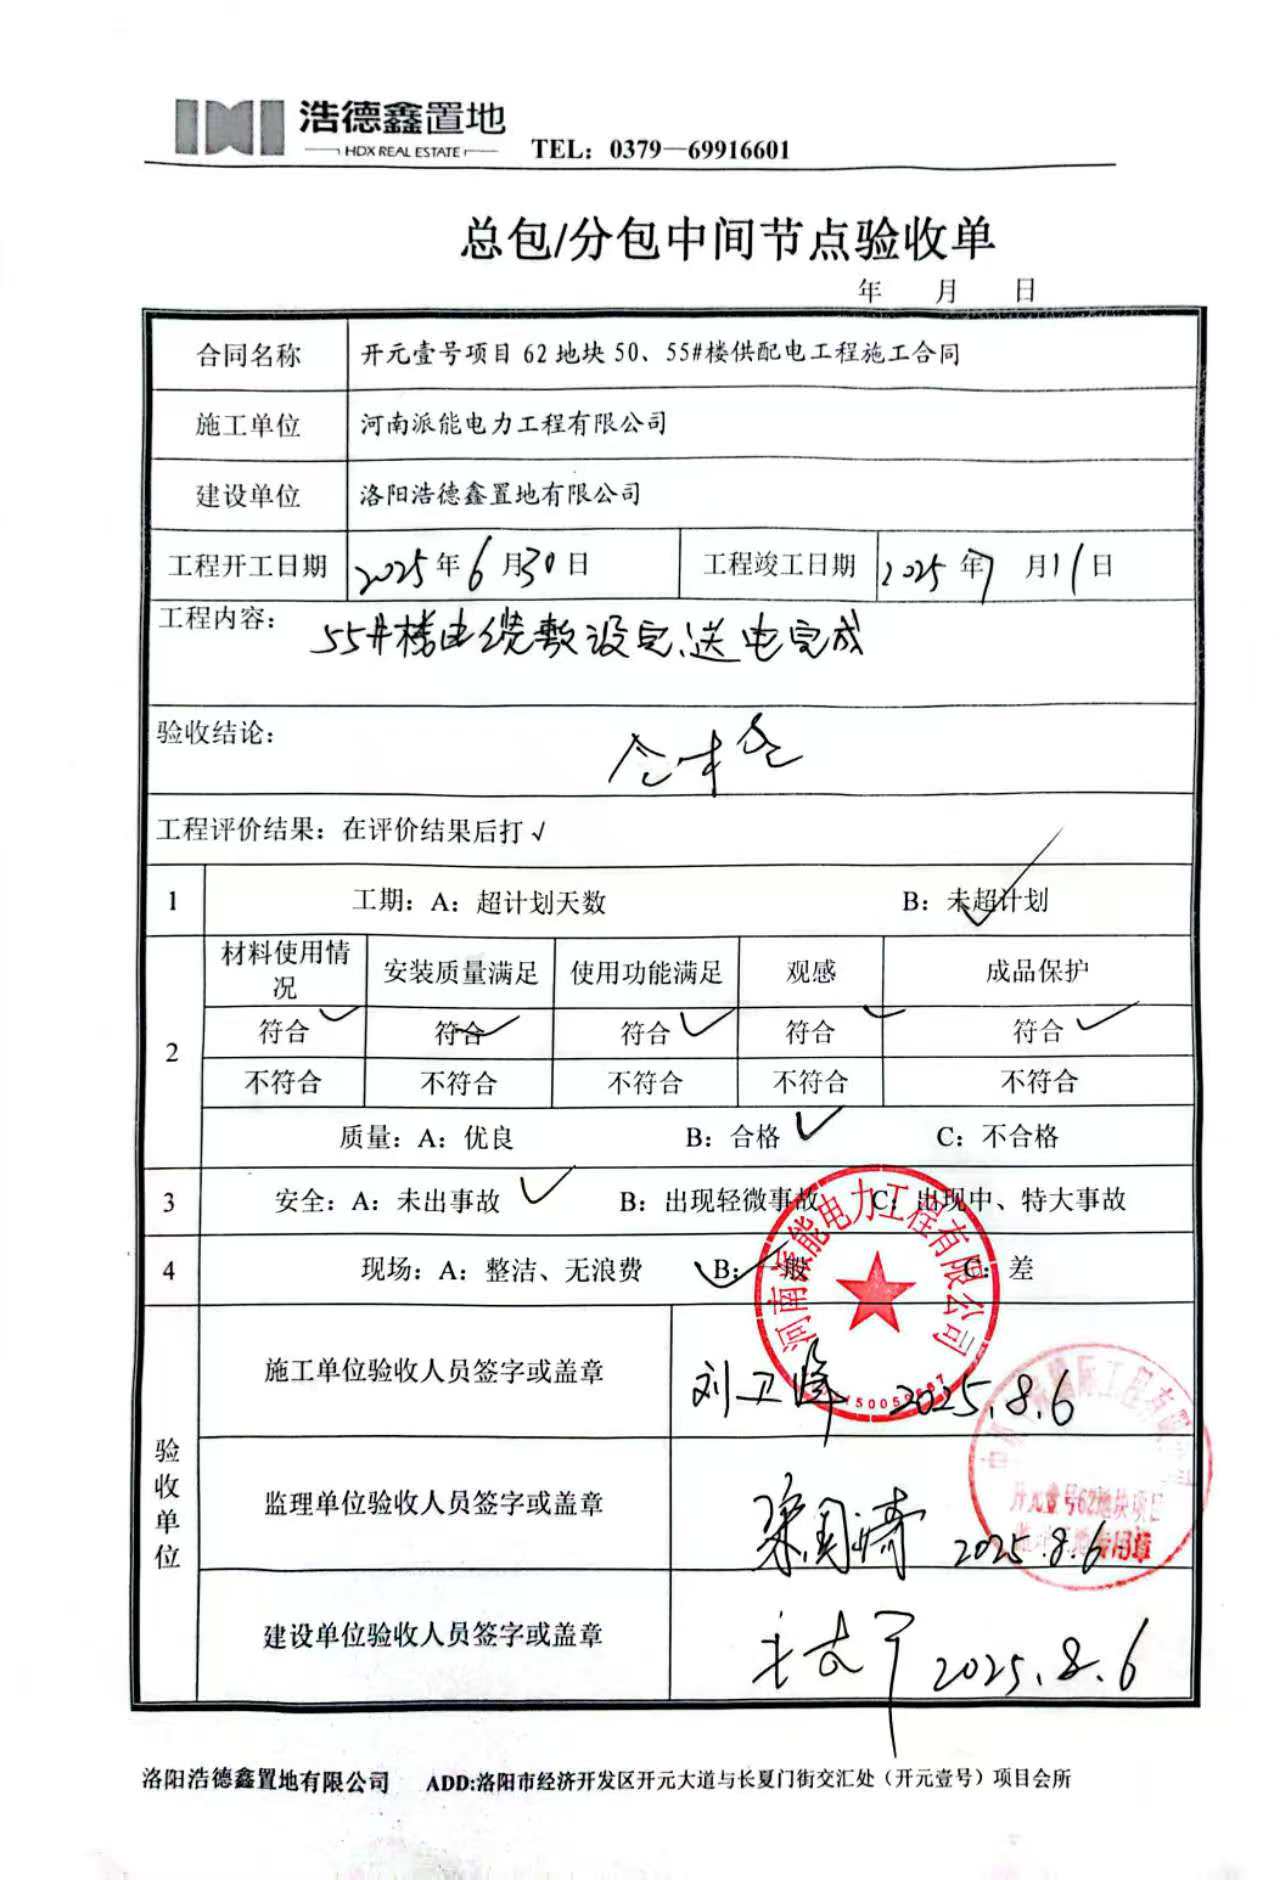 浩德鑫置地
HDX REAL ESTATE
TEL：0379—69916601
总包/分包中间节点验收单
年 月 日
合同名称 开元壹号项目 62 地块 50、55#楼供配电工程施工合同
施工单位 河南派能电力工程有限公司
建设单位 洛阳浩德鑫置地有限公司
工程开工日期 2025年6月30日 工程竣工日期 2025年7月11日
工程内容：
55#楼电缆敷设完、送电完成
验收结论：
合格
工程评价结果：在评价结果后打√
1 工期：A：超计划天数 B：未超计划 ✓
材料使用情况 安装质量满足 使用功能满足 观感 成品保护
2
符合 ✓ 符合 ✓ 符合 ✓ 符合 ✓ 符合 ✓
不符合 不符合 不符合 不符合 不符合
质量：A：优良 B：合格 ✓ C：不合格
3 安全：A：未出事故 ✓ B：出现轻微事故 C：出现中、特大事故
4 现场：A：整洁、无浪费 B：一般 ✓ C：差
河南派能电力工程有限公司
验收单位
施工单位验收人员签字或盖章 刘卫峰 2025.8.6
开元壹号62地块项目
专用章
监理单位验收人员签字或盖章 2025.8.6
建设单位验收人员签字或盖章 2025.8.6
洛阳浩德鑫置地有限公司 ADD:洛阳市经济开发区开元大道与长夏门街交汇处（开元壹号）项目会所